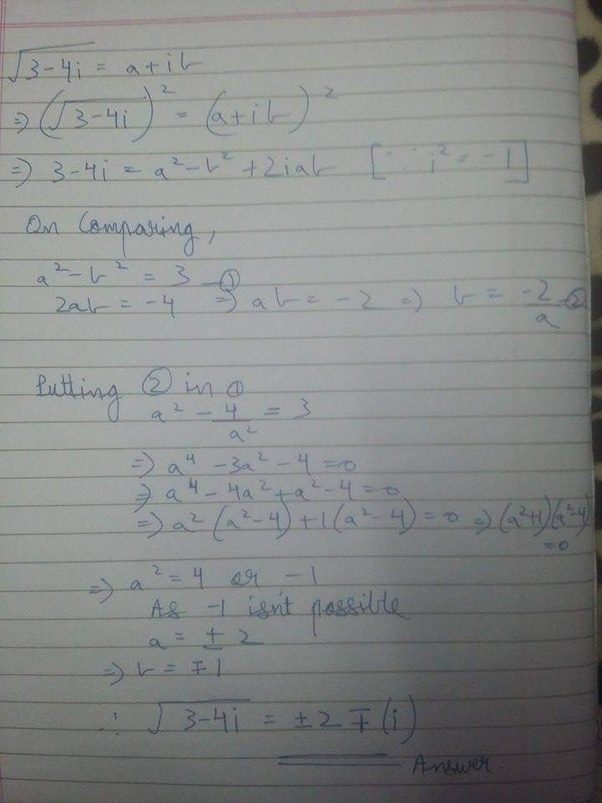 √3-4i = a+ib
⇒ (√3-4i)² = (a+ib)²
⇒ 3-4i = a²-b²+2iab [∵ i² = -1]
On Comparing,
a²-b² = 3 —①
2ab = -4 ⇒ ab = -2 ⇒ b = -2/a —②
Putting ② in ①
a² - 4/a² = 3
⇒ a⁴ -3a² -4 =0
⇒ a⁴ -4a² +a² -4 =0
⇒ a²(a²-4)+1(a²-4) =0 ⇒ (a²+1)(a²-4)
=0
⇒ a² = 4 or -1
As -1 isn't possible
a = ± 2
⇒ b = ∓1
∴ √3-4i = ±2 ∓ (i)
Answer.